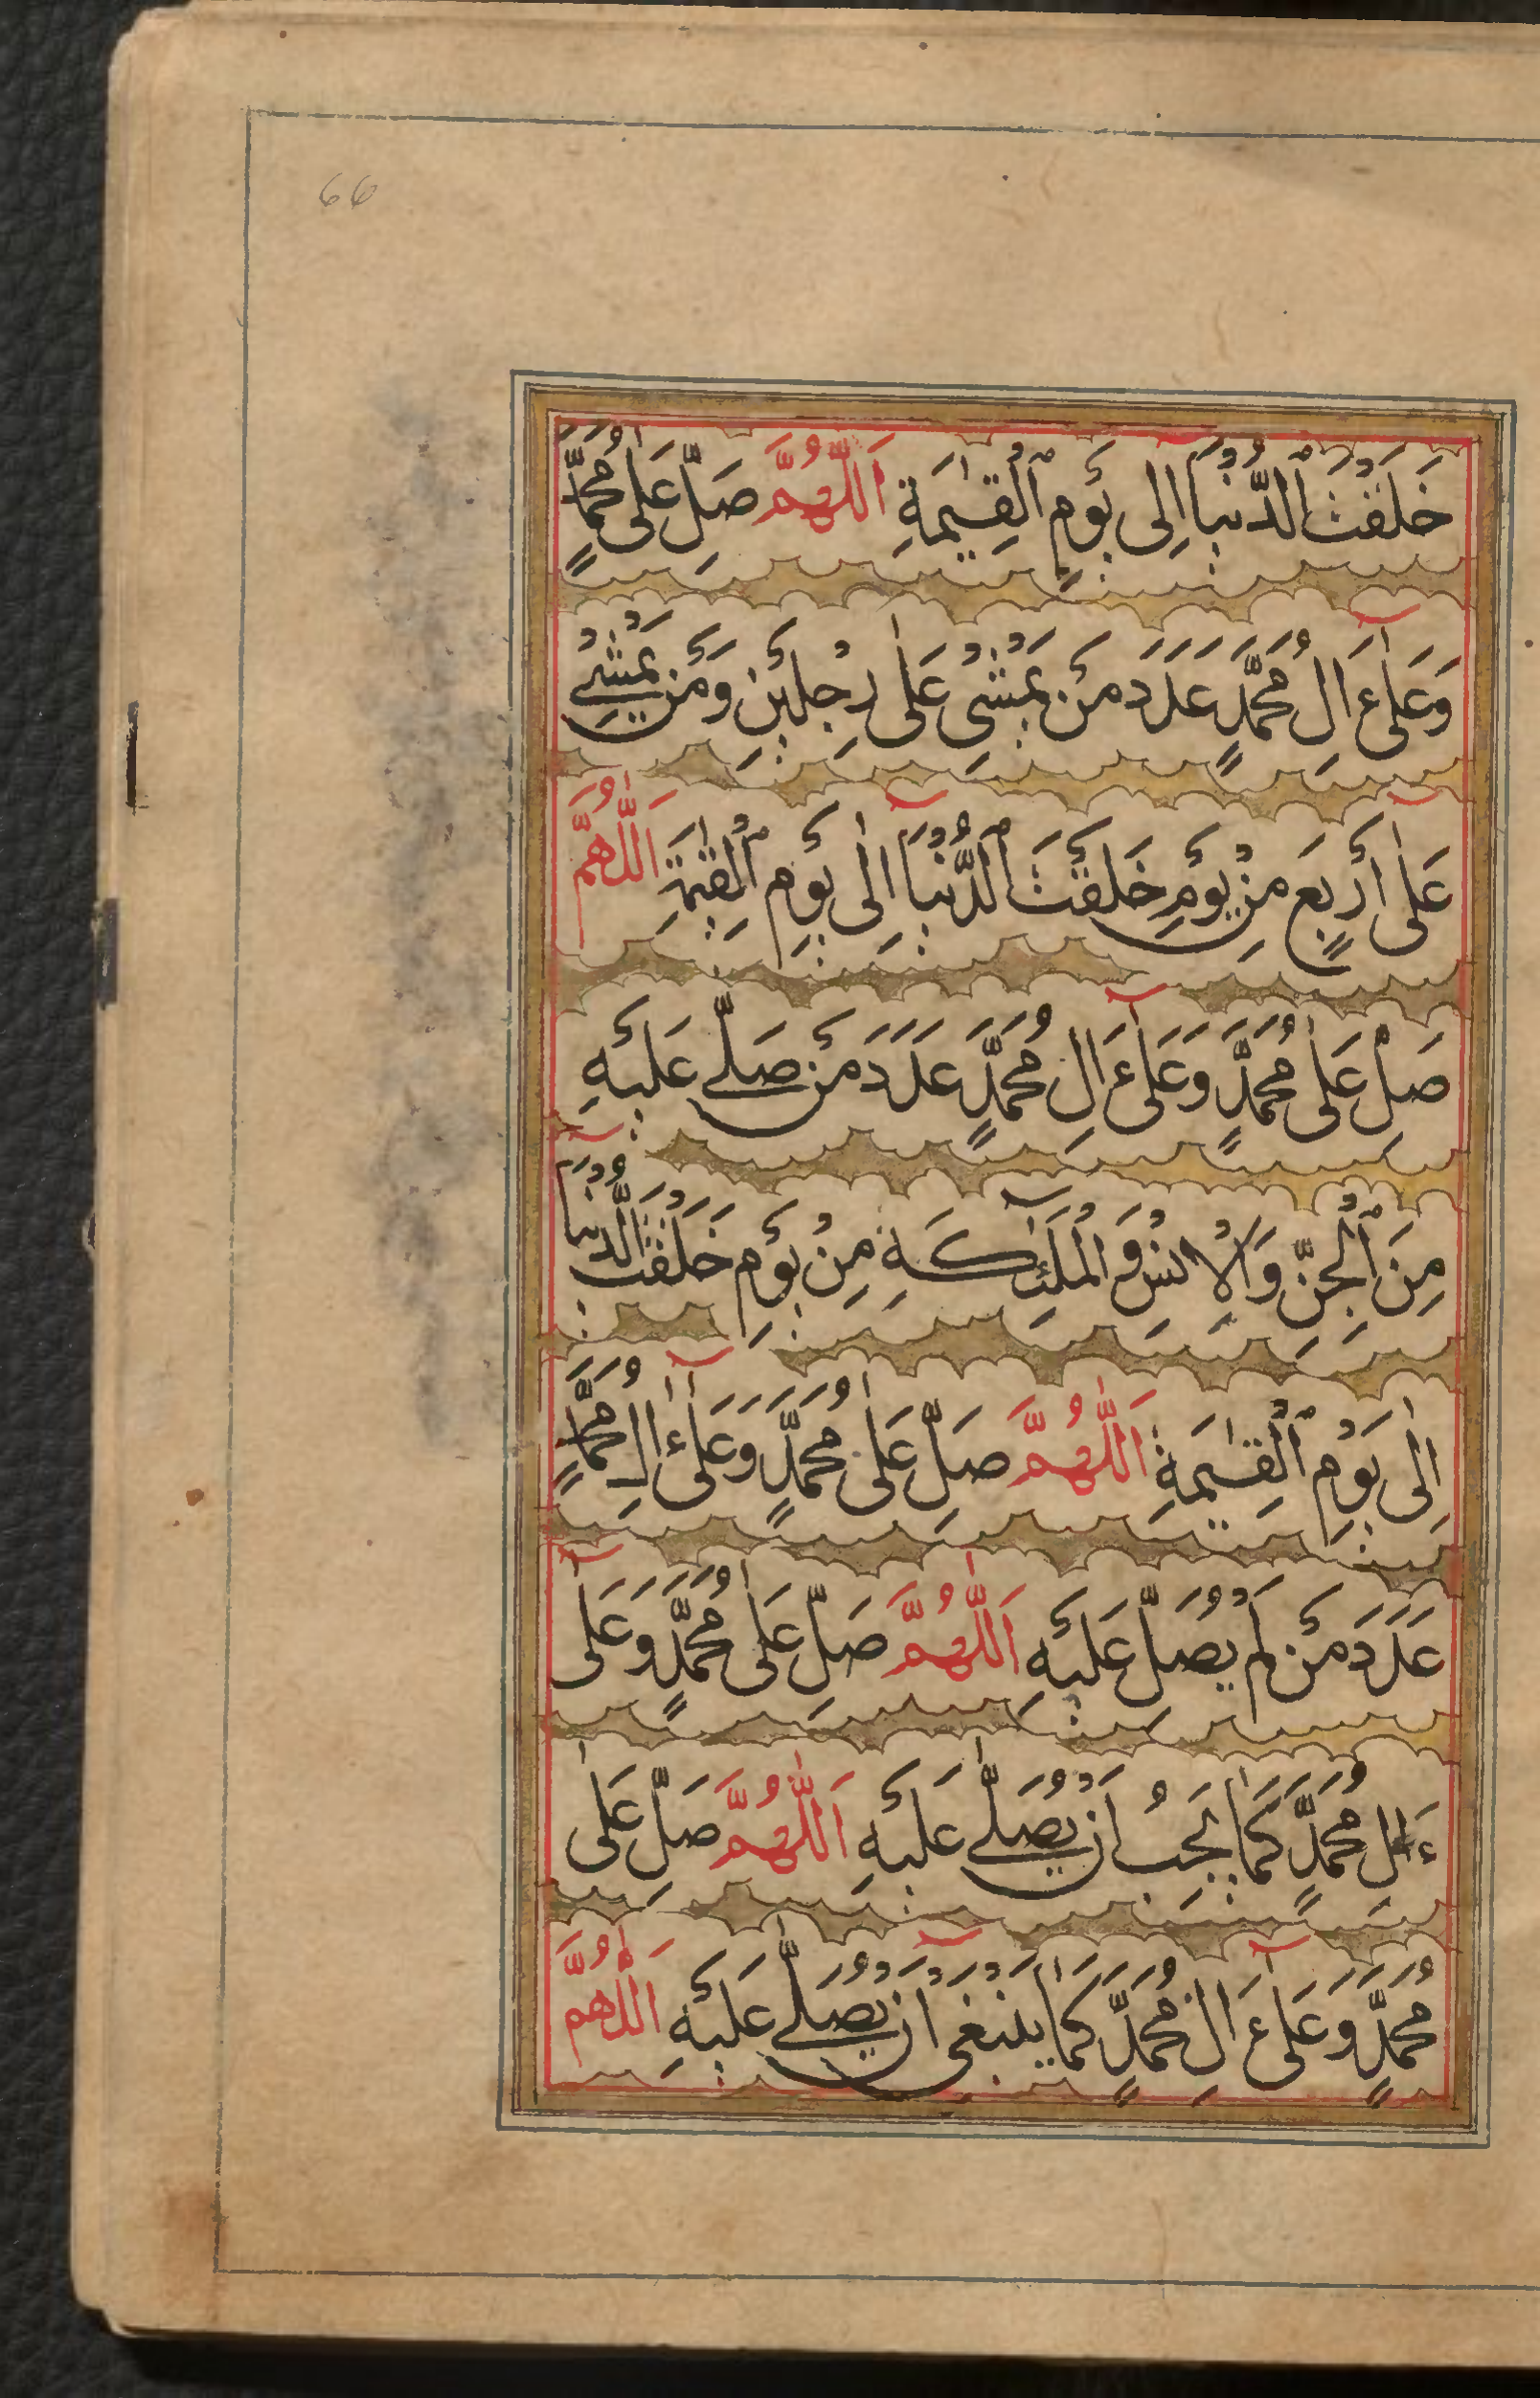 66
خَلَقْتَ ٱلدُّنْيَآ اِلٰى يَوْمِ ٱلْقِيٰمَةِ اَللّٰهُمَّ صَلِّ عَلٰى مُحَمَّدٍ
وَعَلٰٓى ءَالِ مُحَمَّدٍ عَدَدَ مَنْ يَمْشٖى عَلٰى رِجْلَيْنِ وَمَنْ يَمْشٖى
عَلٰٓى اَرْبَعٍ مِنْ يَوْمِ خَلَقْتَ ٱلدُّنْيَآ اِلٰى يَوْمِ ٱلْقِيٰمَةِ اَللّٰهُمَّ
صَلِّ عَلٰى مُحَمَّدٍ وَعَلٰٓى ءَالِ مُحَمَّدٍ عَدَدَ مَنْ صَلّٰى عَلَيْهِ
مِنَ ٱلْجِنِّ وَالْاِنْسِ وَالْمَلٰٓئِكَةِ مِنْ يَوْمِ خَلَقْتَ الدُّنْيَآ
اِلٰى يَوْمِ ٱلْقِيٰمَةِ اَللّٰهُمَّ صَلِّ عَلٰى مُحَمَّدٍ وَعَلٰٓى ءَالِ مُحَمَّدٍ
عَدَدَ مَنْ لَمْ يُصَلِّ عَلَيْهِ اَللّٰهُمَّ صَلِّ عَلٰى مُحَمَّدٍ وَعَلٰٓى
ءَالِ مُحَمَّدٍ كَمَا يَجِبُ اَنْ يُصَلّٰى عَلَيْهِ اَللّٰهُمَّ صَلِّ عَلٰى
مُحَمَّدٍ وَعَلٰٓى ءَالِ مُحَمَّدٍ كَمَا يَنْبَغٖىٓ اَنْ يُصَلّٰى عَلَيْهِ اَللّٰهُمَّ